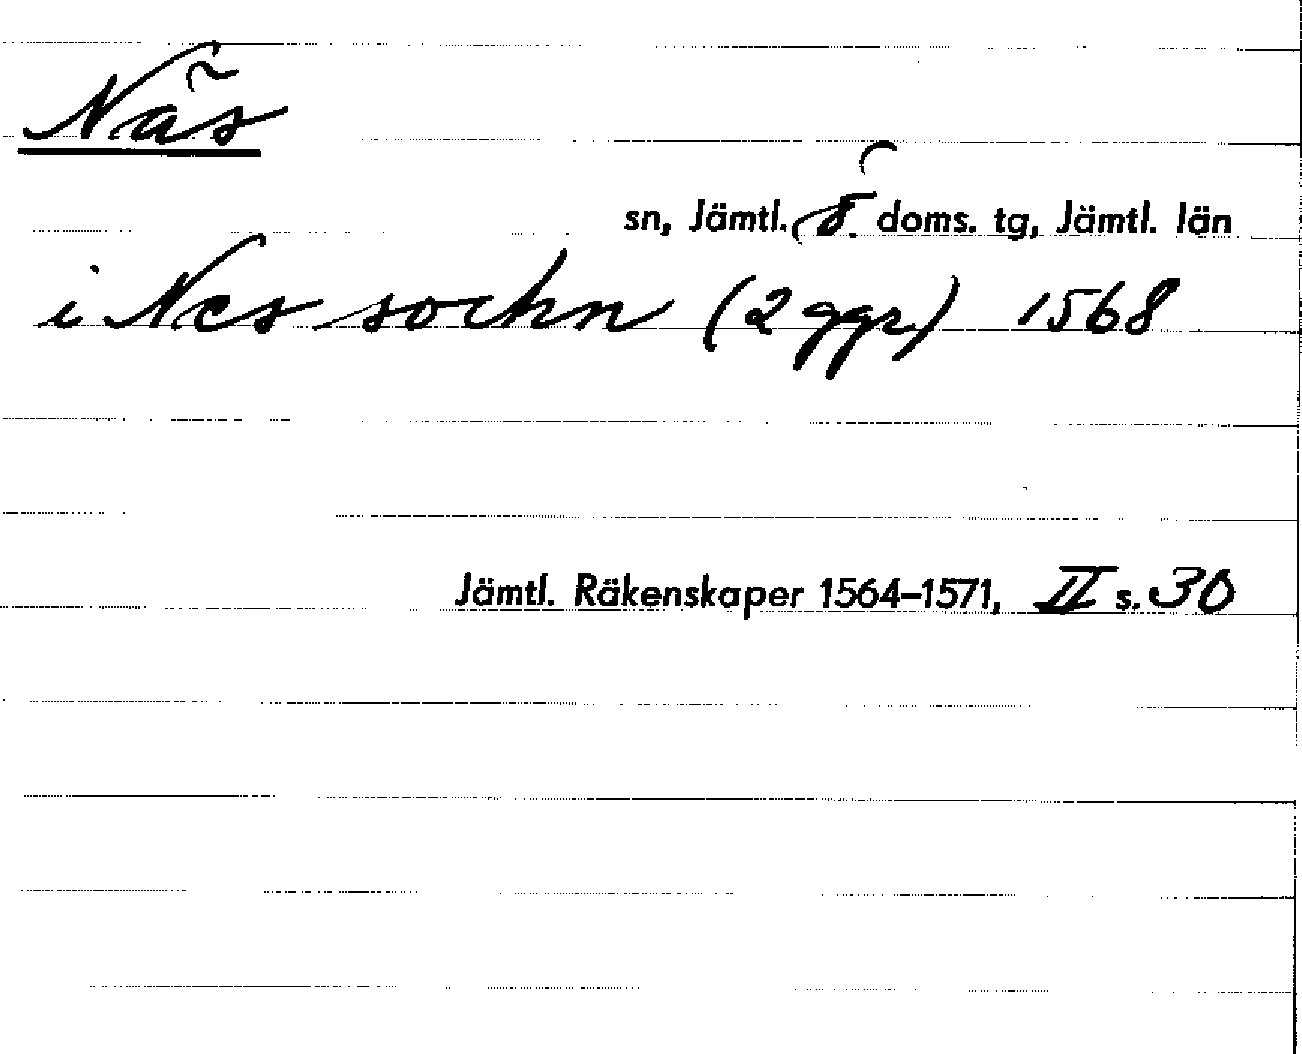 Näs
sn, Jämtl. ö. doms. tg, Jämtl. län
i Nes sochn (2 ggr) 1568
Jämtl. Räkenskaper 1564–1571, II s. 30